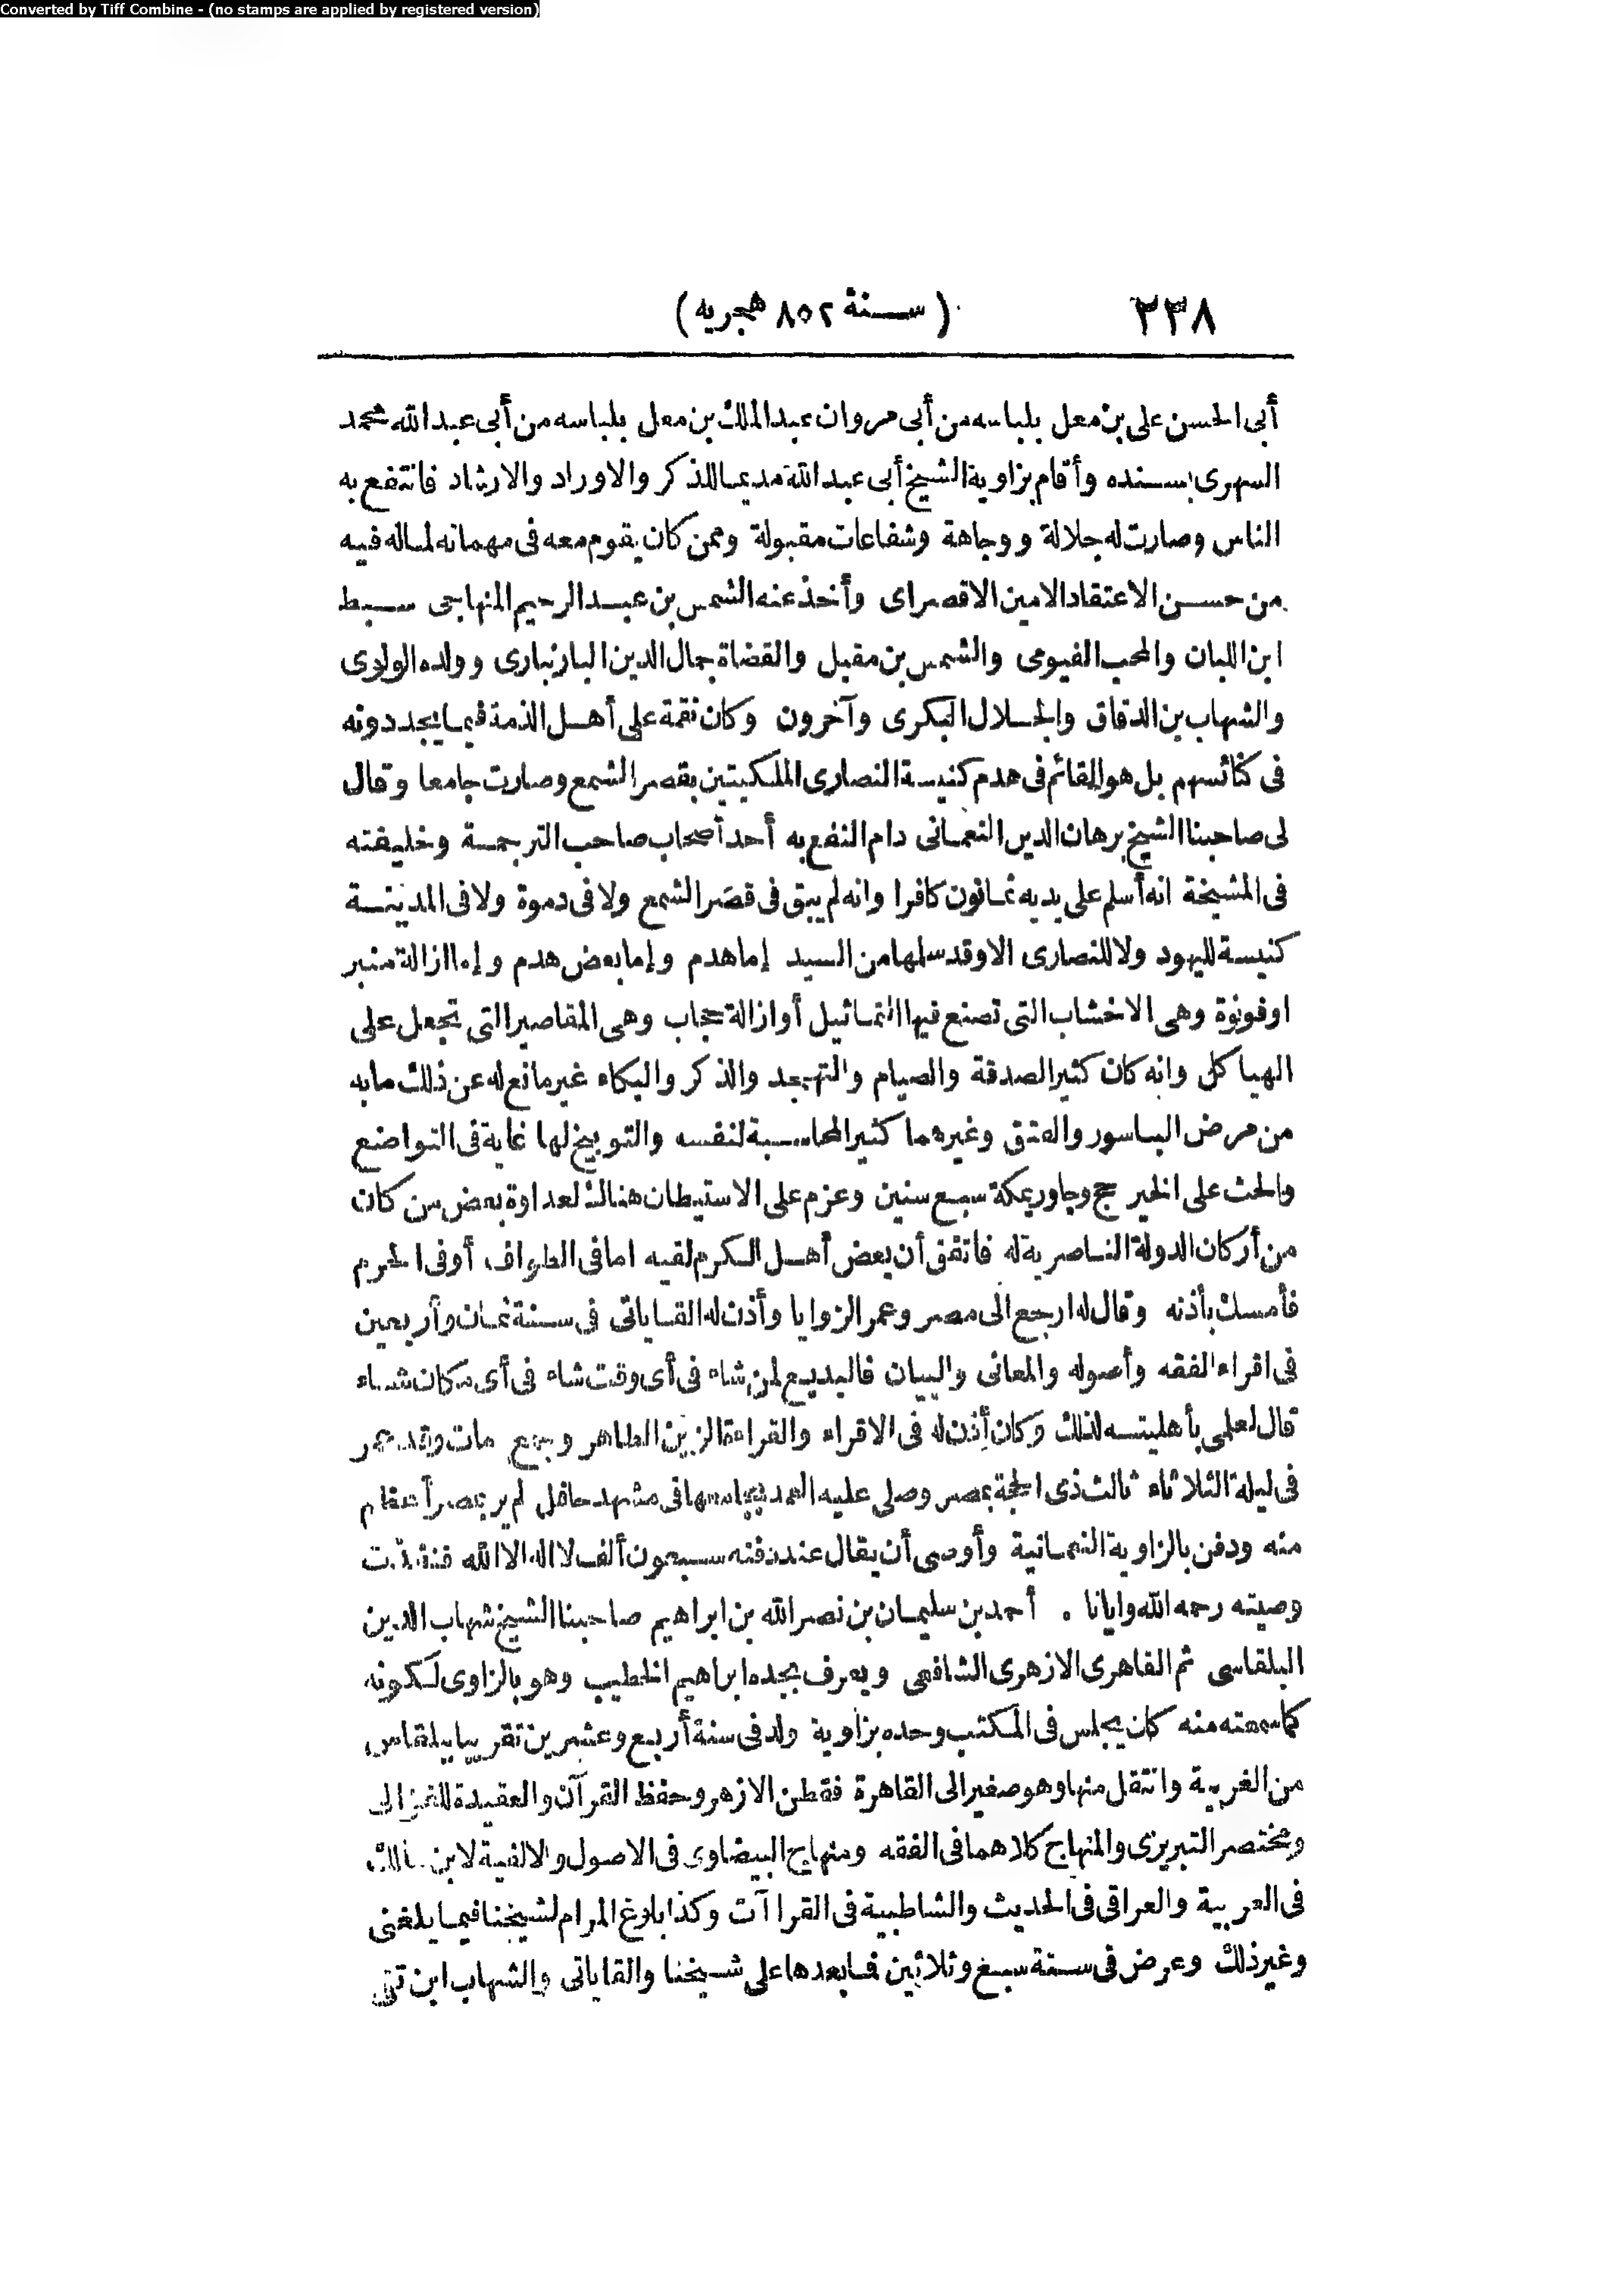 Converted by Tiff Combine - (no stamps are applied by registered version)
٢٣٨ (سنة ٨٥٢ هجريه)
أبى الحسن على بن معل بلباسه من أبى مروان عبد الملك بن معل بلباسه من أبى عبد الله محمد
السهرى بسنده وأقام بزاوية الشيخ أبى عبد الله مديما للذكر والاوراد والارشاد فانتفع به
الناس وصارت له جلالة ووجاهة وشفاعات مقبولة وممن كان يقوم معه فى مهماته لماله فيه
من حسن الاعتقاد الامين الاقصراى وأخذ عنه الشمس بن عبد الرحيم المنهاجى سبط
ابن اللبان والمحب الفيومى والشمس بن مقبل والقضاة جمال الدين البارنبارى وولده الولوى
والشهاب بن الدقاق والجلال البكرى وآخرون وكان نقمة على أهل الذمة فيما يجددونه
فى كنائسهم بل هو القائم فى هدم كنيسة النصارى الملكيتين بقصر الشمع وصارت جامعا وقال
لى صاحبنا الشيخ برهان الدين النعمانى دام النفع به أحد أصحاب صاحب الترجمة وخليفته
فى المشيخة انه أسلم على يديه ثمانون كافرا وانه لم يبق فى قصر الشمع ولا فى دموة ولا فى المدينة
كنيسة لليهود ولا للنصارى الا وقد سلمها من السيد إما هدم وإما بعض هدم وإما ازالة منبر
اوفونوة وهى الاخشاب التى تصنع فيها التماثيل أو ازالة حجاب وهى المقاصير التى تجعل على
الهياكل وانه كان كثير الصدقة والصيام والتهجد والذكر والبكاء غير مانع له عن ذلك ما به
من مرض الباسور والفتق وغيرهما كثير المحاسبة لنفسه والتوبيخ لها غاية فى التواضع
والحث على الخير حج وجاور بمكة سبع سنين وعزم على الاستيطان هنالك لعداوة بعض من كان
من أركان الدولة الناصرية له فاتفق أن بعض أهل الكرم لقيه اما فى الطواف أوفى الحرم
فأمسك بأذنه وقال له ارجع الى مصر وعمر الزوايا وأذن له القاياتى فى سنة ثمان وأربعين
فى اقراء الفقه وأصوله والمعانى والبيان فالبديع لمن شاء فى أى وقت شاء فى أى مكان شاء
قال لعلمى بأهليته لذلك وكان أذن له فى الاقراء والقراءة الزين الطاهر وجمع مات وقد عمر
فى ليلة الثلاثاء ثالث ذى الحجة بمصر وصلى عليه الغد بجامعها فى مشهد حافل لم ير بمصر أعظم
منه ودفن بالزاوية النعمانية وأوصى أن يقال عند دفنه سبعون ألف لا اله الا الله فنفذت
وصيته رحمه الله وايانا . أحمد بن سليمان بن نصر الله بن ابراهيم صاحبنا الشيخ شهاب الدين
البلقاسى ثم القاهرى الازهرى الشافعى ويعرف بجده ابراهيم الخطيب وهو بالزاوى لكونه
كما سمعته منه كان يجلس فى المكتب وحده بزاوية ولد فى سنة أربع وعشرين تقريبا ببلقاس
من الغربية وانتقل منها وهو صغير الى القاهرة فقطن الازهر وحفظ القرآن والعقيدة للغزالى
ومختصر التبريزى والمنهاج كلاهما فى الفقه ومنهاج البيضاوى فى الاصول والالفية لابن مالك
فى العربية والعراقى فى الحديث والشاطبية فى القراآت وكذا بلوغ المرام لشيخنا فيما بلغنى
وغير ذلك وعرض فى سنة سبع وثلاثين فما بعدها على شيخنا والقاياتى والشهاب ابن تقى